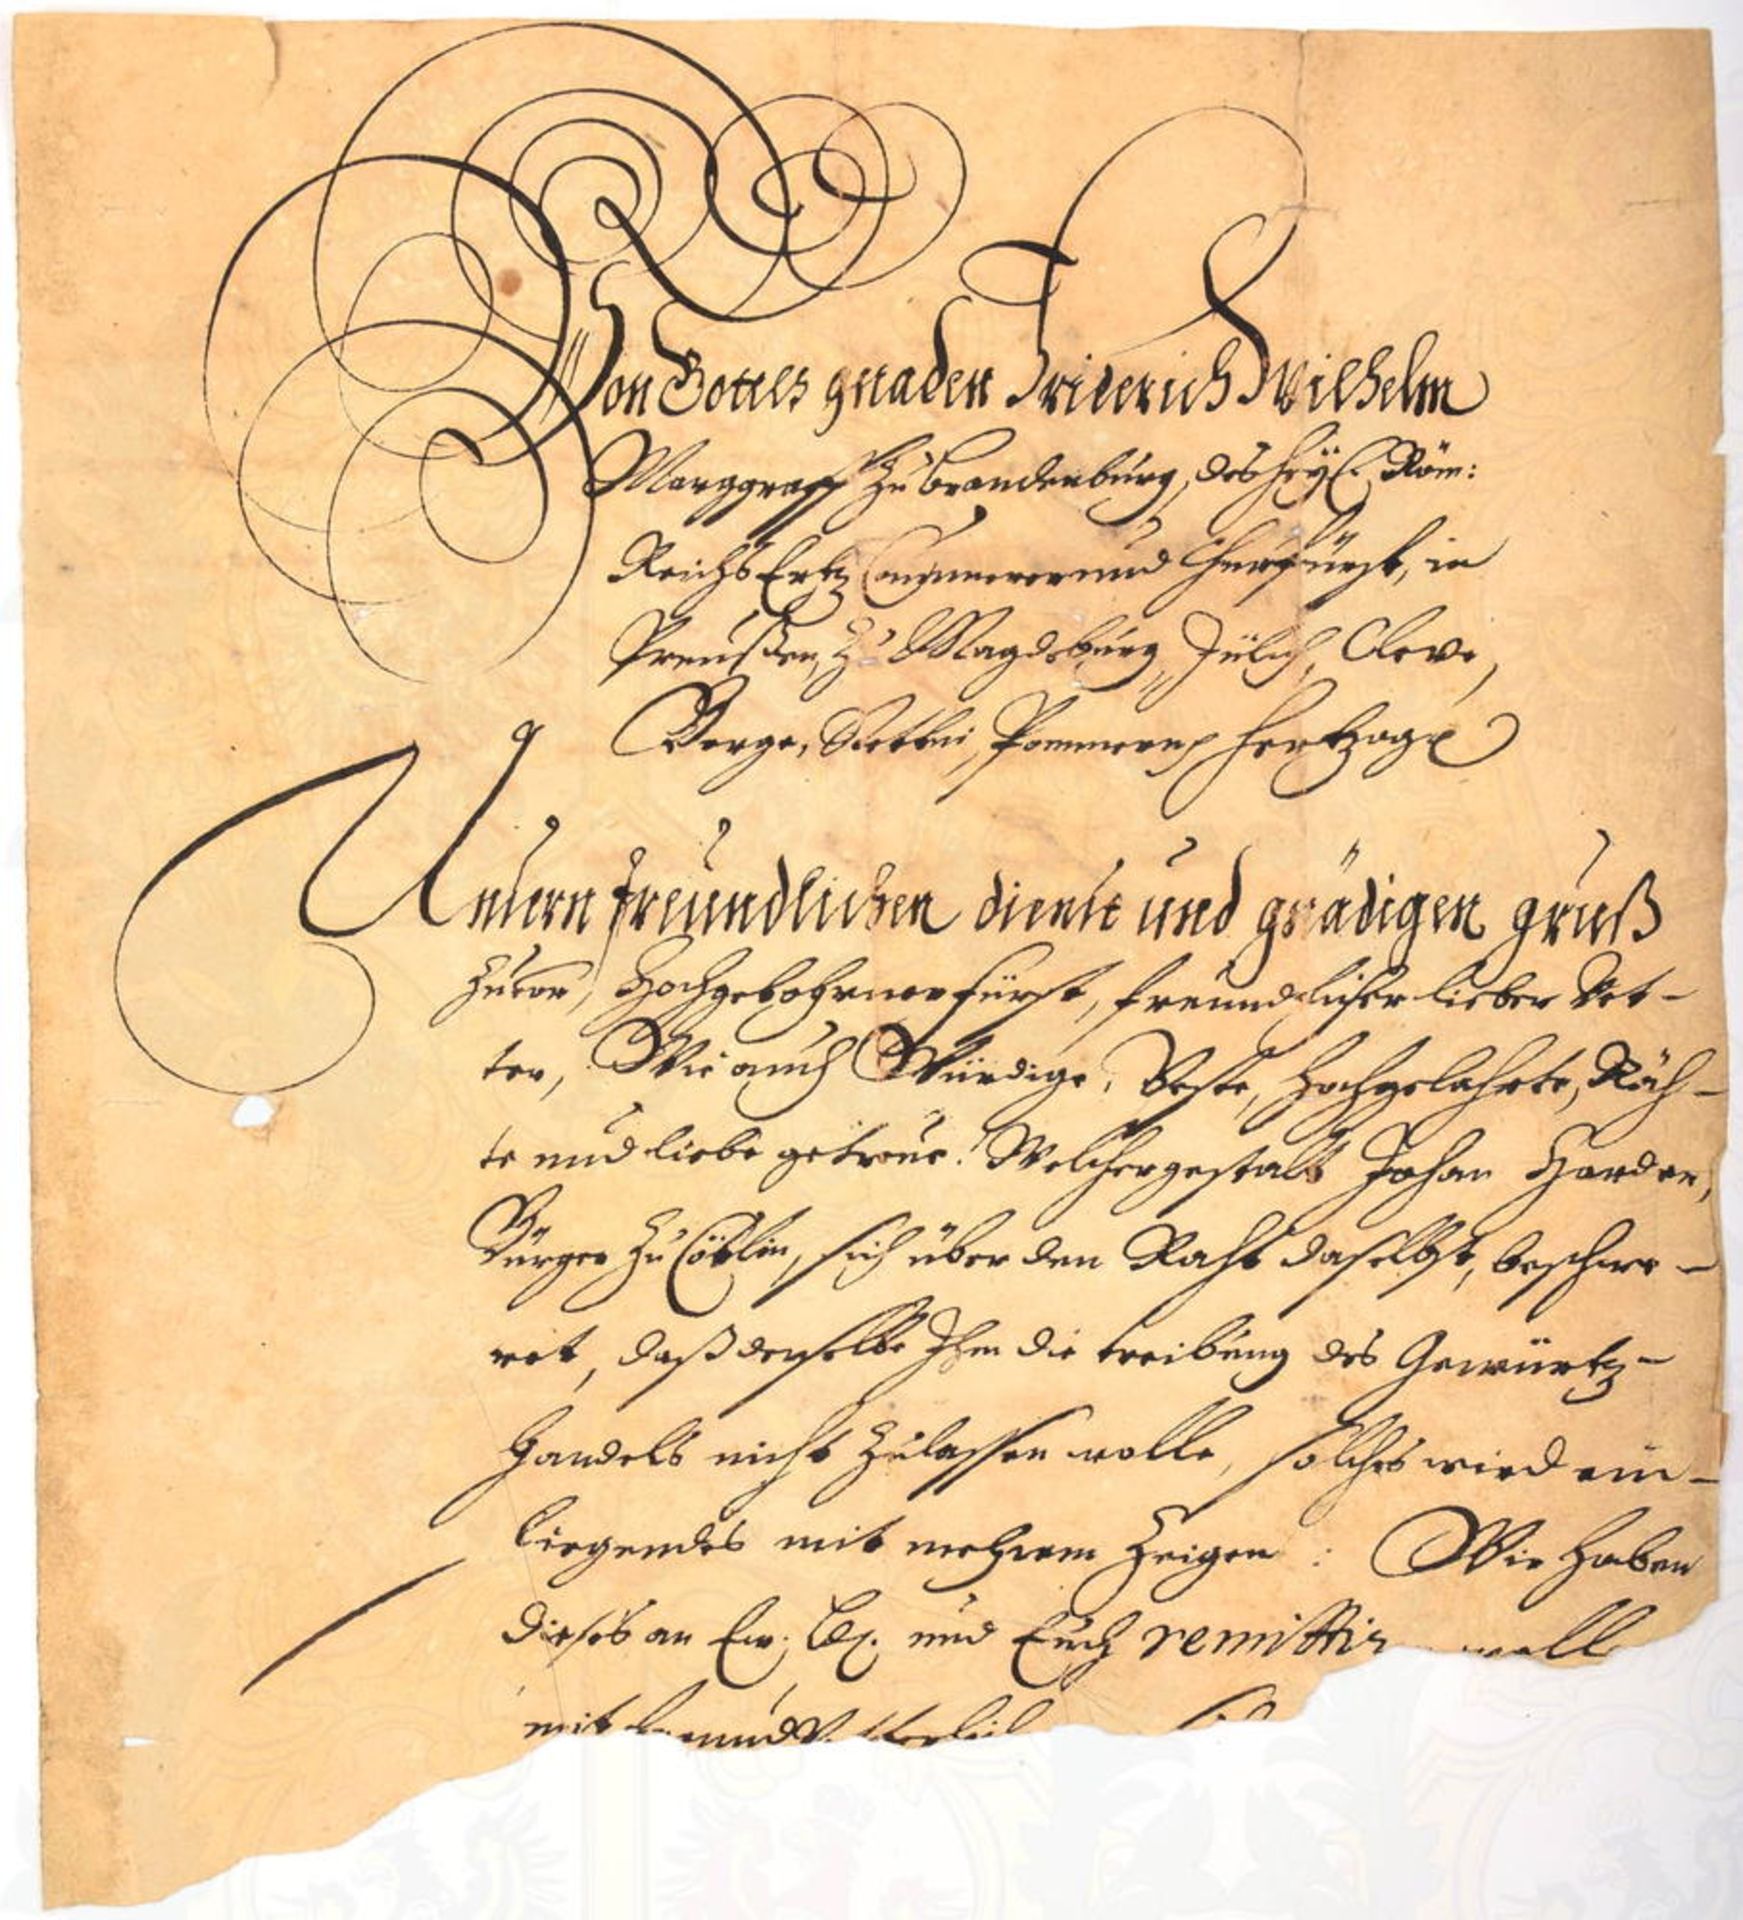 Von Gottes gnaden Friderich Wilhelm
Marggraff Zu Brandenburg, des Heyl. Röm:
Reichs Ertz Cammerer und Churfürst, in
Preußen, Zu Magdeburg, Jülich, Cleve,
Berge, Stettin, Pommern p Hertzog p
Unsern freundlichen dienst und gnädigen gruß
Zuvor, Hochgebohrner Fürst, freundlicher lieber Vet-
ter, Wie auch Würdige, Veste, Hochgelahrte, Räh-
te und liebe getreue! Welchergestalt Johan Harder,
Bürger Zu Cößlin, sich über den Raht daselbst, beschwe-
ret, daß derselbe Ihm die treibung des Gewürtz-
Handels nicht Zulassen wolle, solches wird ein-
liegendes mit mehrem Zeigen: Wir haben
dieses an Ew. Ld. und Euch remittir woll
mit und